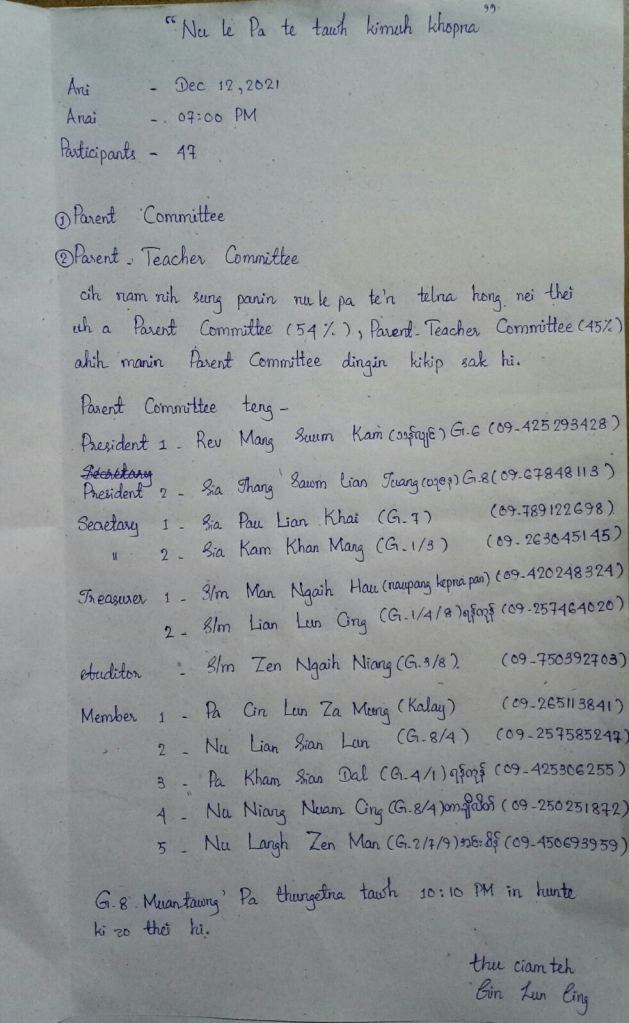 “ Nu le Pa te tawh kimuh khopna ”
Ani - Dec 12, 2021
Anai - 07:00 PM
Participants - 47
① Parent Committee
② Parent - Teacher Committee
cih nam nih sung panin nu le pa te'n telna hong nei thei
uh a Parent Committee (54%), Parent-Teacher Committee (45%)
ahih manin Parent Committee dingin kikip sak hi.
Parent Committee teng -
President 1 - Rev Mang Suum Kam G-6 (09-425293428)
Secretary
President 2 - Sia Thang Sawm Lian Tuang G.8 (09-67848113)
Secretary 1 - Sia Pau Lian Khai (G-7) (09-789122698)
" 2 - Sia Kam Khan Mang (G-1/3) (09-263045145)
Treasurer 1 - S/m Man Ngaih Hau (naupang kepna pan) (09-420248324)
2 - S/m Lian Lun Cing (G-1/4/8) ရန်ကုန် (09-257464020)
Auditor - S/m Zen Ngaih Niang (G-3/8) (09-750392703)
Member 1 - Pa Cin Lun Za Mung (Kalay) (09-265113841)
2 - Nu Lian Sian Lun (G-8/4) (09-257585247)
3 - Pa Kham Sian Dal (G-4/1) ရန်ကုန် (09-425306255)
4 - Nu Niang Nuam Cing (G-8/4) (09-250251872)
5 - Nu Langh Zen Man (G-2/7/9) (09-450693959)
G-8 Muantawng' Pa thungetna tawh 10:10 PM in hunte
ki zo thei hi.
thu ciam teh
Cin Lun Cing